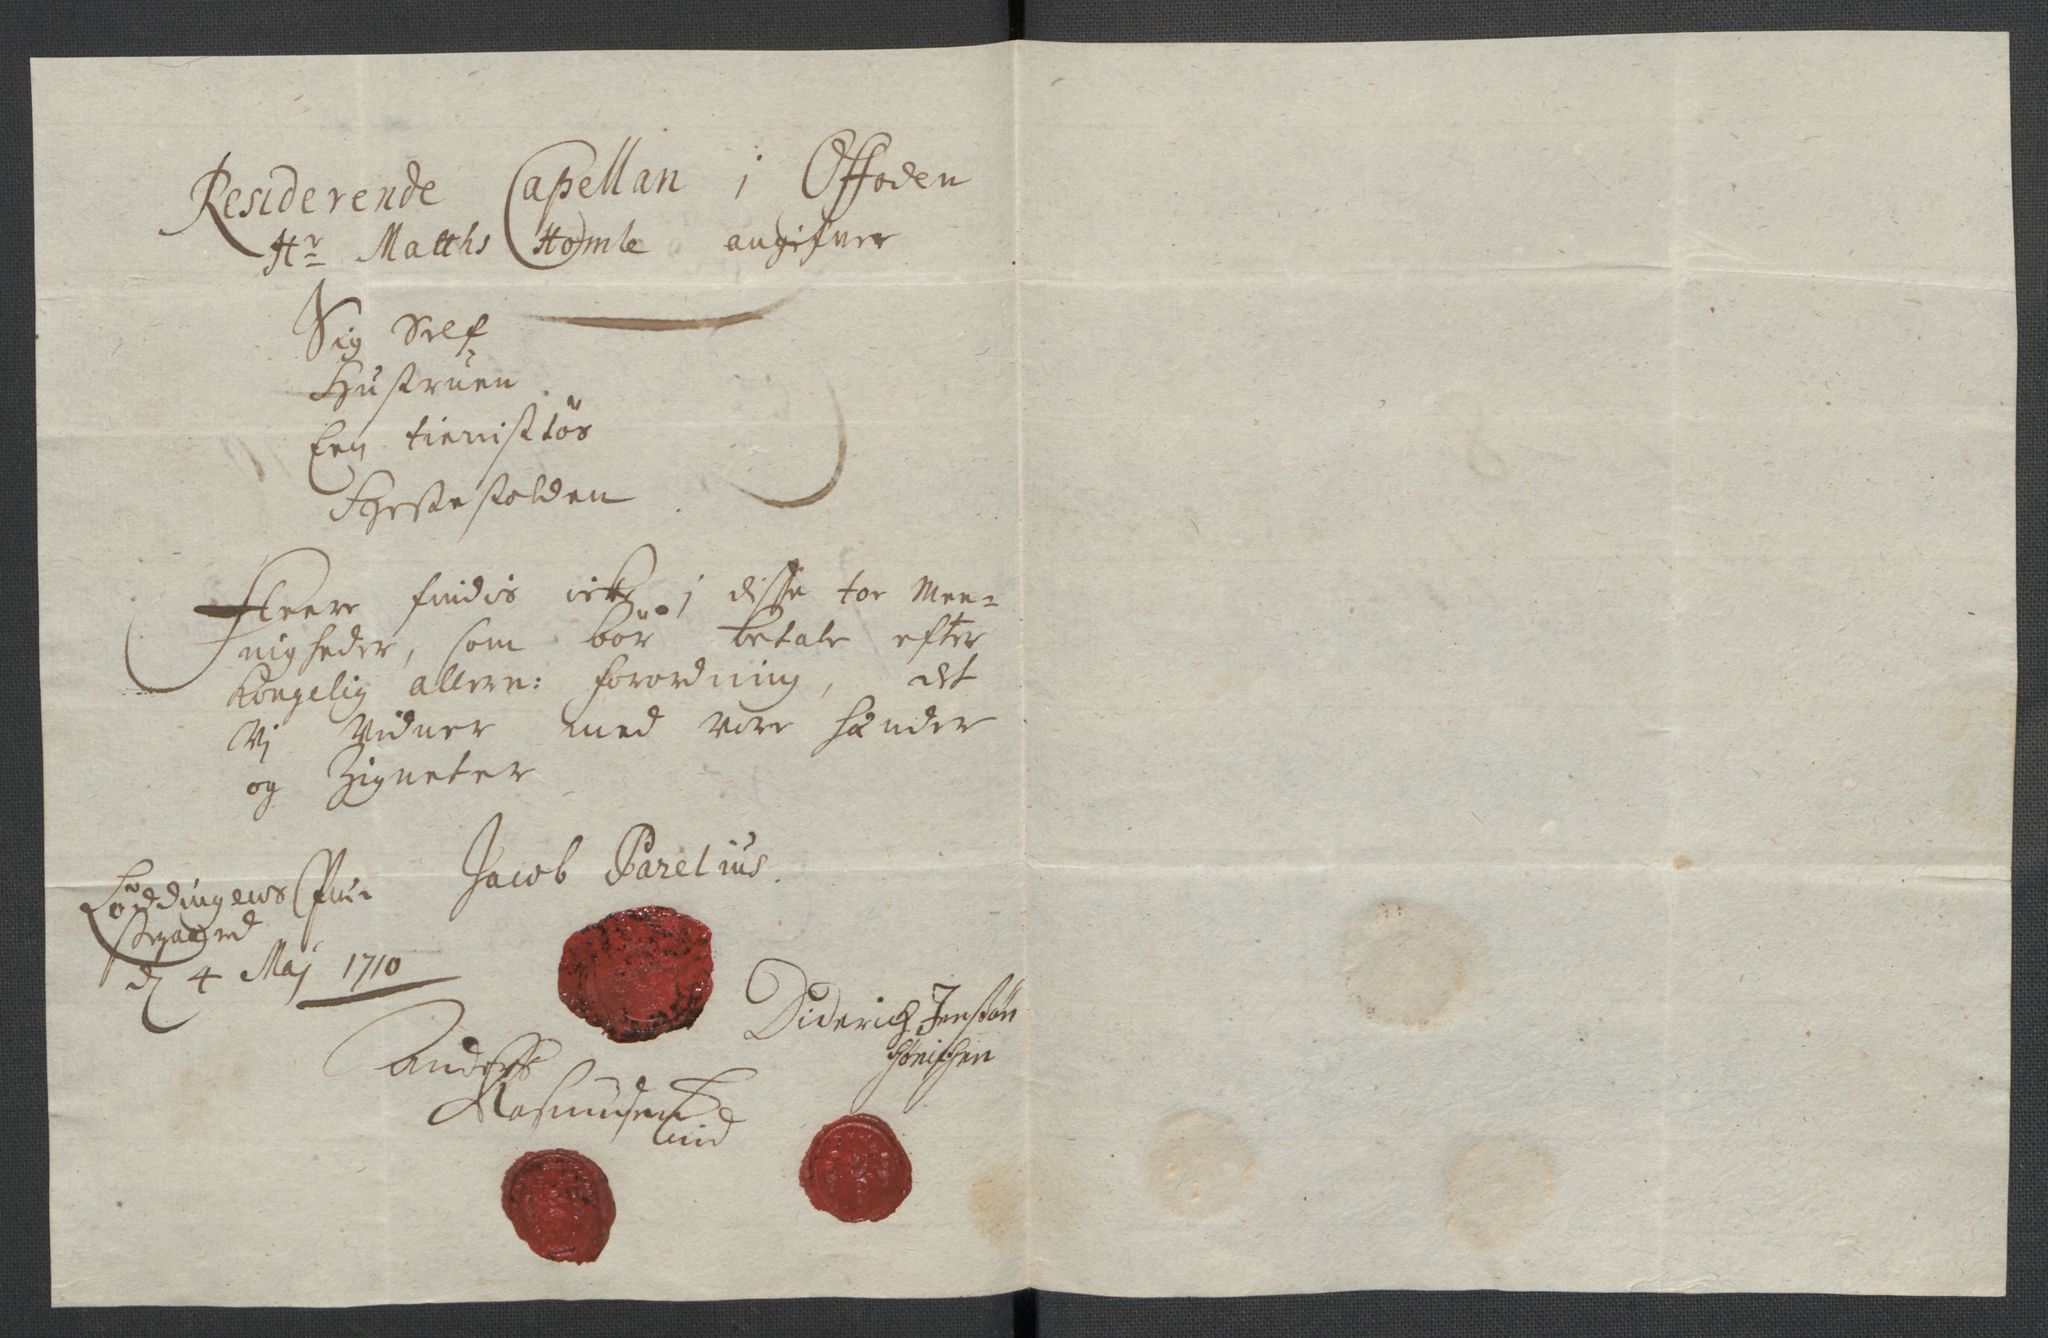 Residerende Capellan i Offoden
Hr Matths Homle angifver
Sig Self
Hustruen
Een tienisttös
Hesteholden
Fleere findis icke i disse toe Mee=
nigheder, som bör betale efter
Kongelig allern: forordning, det
Vj Vidner med vore hænder
og Zigneter
Jacob Parelius.
Löddingens Præ-
stegaard
d 4 Maj 1710
Diderich Jensön
Anders
Rasmusen
Lund